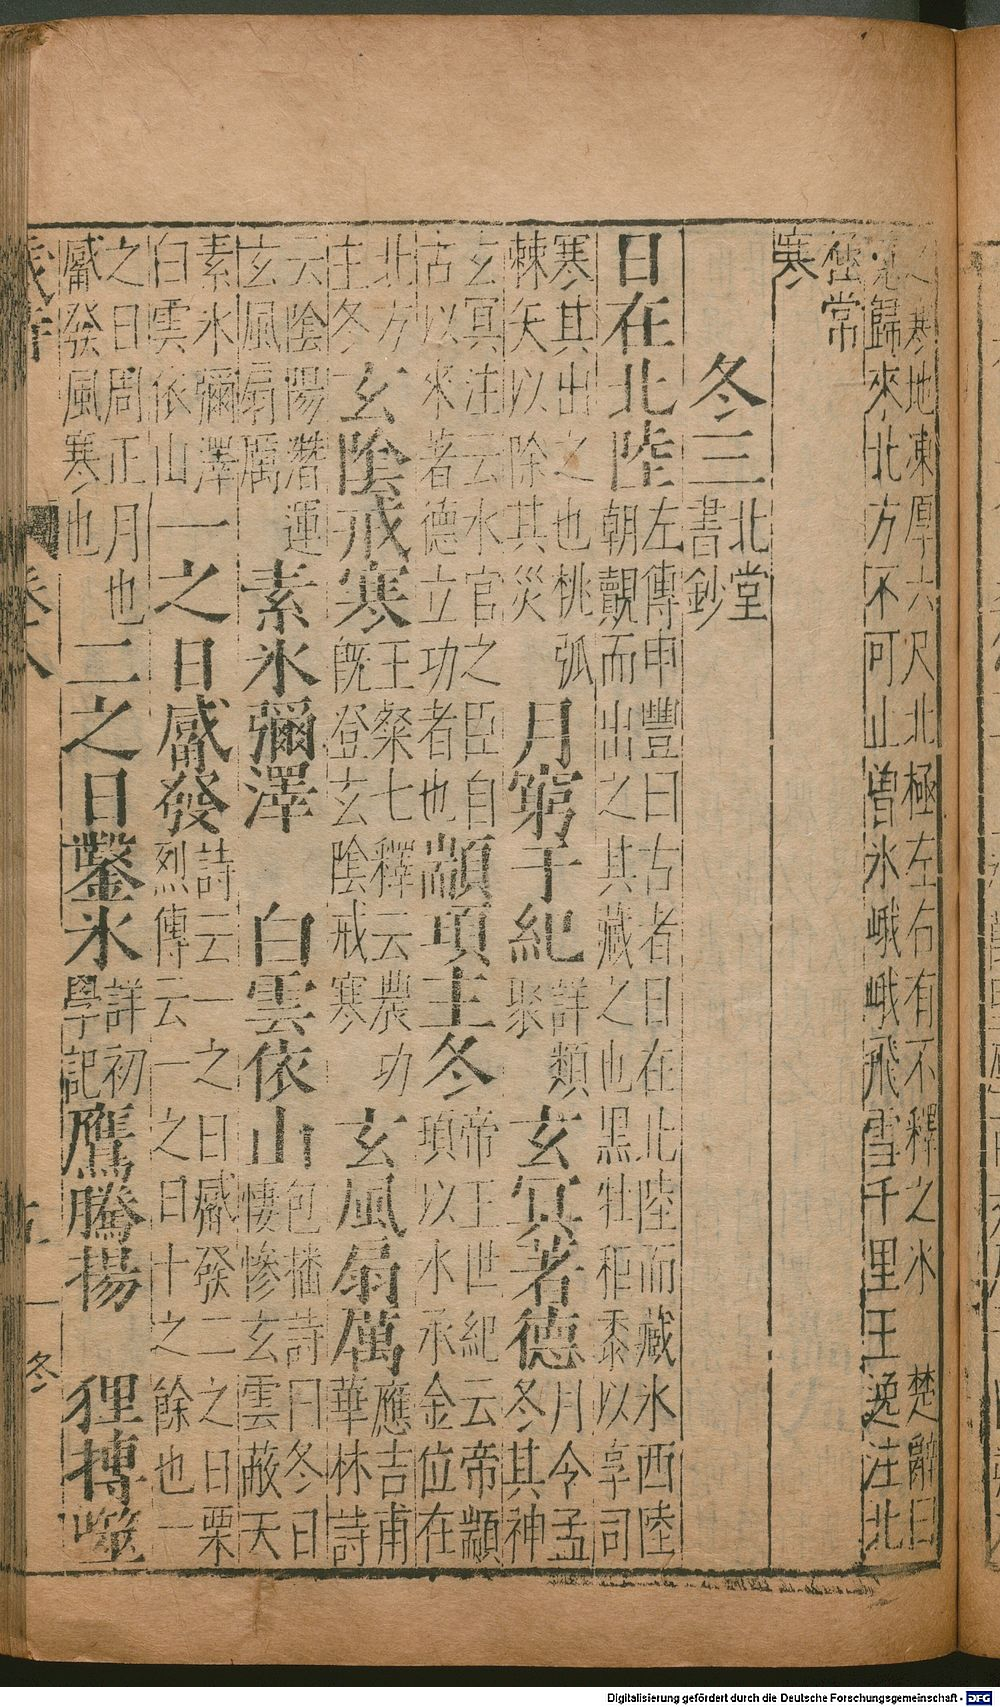 之寒地凍厚六尺北極左右有不釋之氷　楚辭曰
䰟歸來北方不可止曽氷峨峨飛雪千里王逸注北
極常
寒
冬三
北堂
書鈔
日在北陸
左傳申豐曰古者日在北陸而藏氷西陸
朝覿而出之其藏之也黒牡秬黍以享司
寒其出之也桃弧
棘矢以除其災
月窮于紀
詳類
聚
玄冥著德
月令孟
冬其神
玄冥注云水官之臣自
古以來著德立功者也
顓頊主冬
帝王世紀云帝顓
頊以水承金位在
北方
主冬
玄陰戒寒
王粲七釋云農功
既登玄陰戒寒
玄風扇厲
應吉甫
華林詩
云陰陽潛運
玄風扇厲
素氷彌澤
白雲依山
包播詩曰冬日
悽慘玄雲蔽天
素氷彌澤
白雲依山
一之日觱發
詩云一之日觱發二之日栗
烈傳云一之日十之餘也一
之日周正月也
觱發風寒也
二之日鑿氷
詳初
學記
鷹騰揚
狸搏噬
歲時
卷八
冬
Digitalisierung gefördert durch die Deutsche Forschungsgemeinschaft - DFG